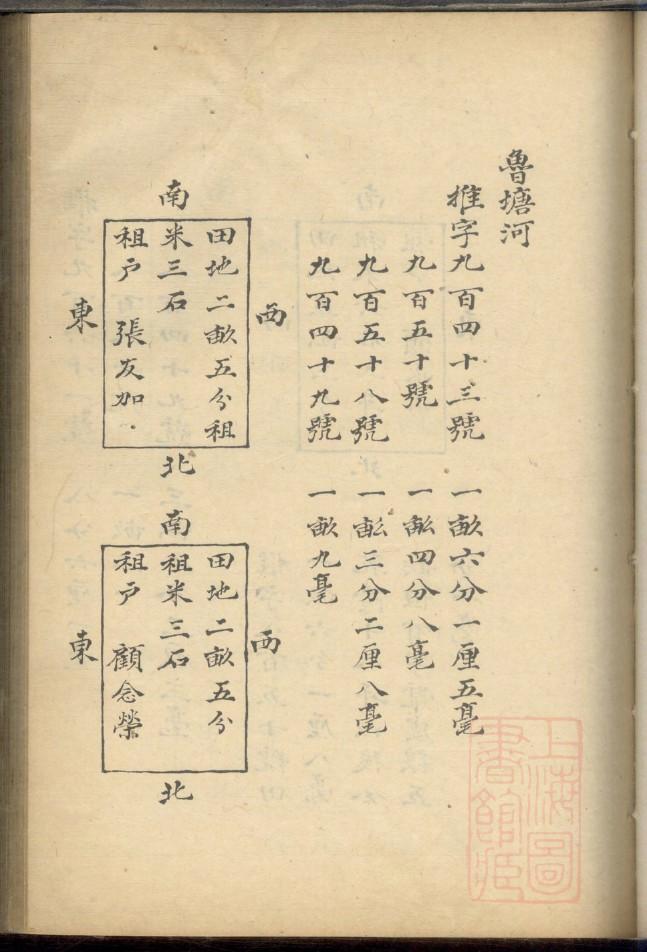 魯塘河
推字九百四十三號 一畝六分一厘五毫
九百五十號 一畝四分八毫
九百五十八號 一畝三分二厘八毫
九百四十九號 一畝九毫
南
西
田地二畝五分租
米三石
租戶 張友加
東
北
南
西
田地二畝五分
租米三石
租戶 顧念榮
東
北
上海圖
書館藏